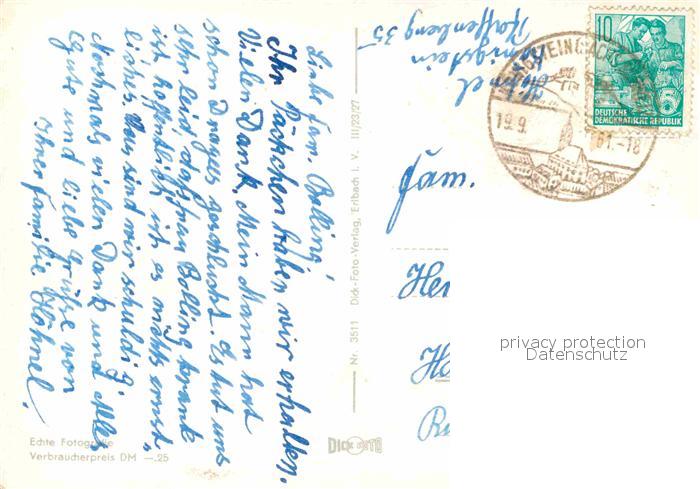 Liebe Fam. Bolling!
Ihr Päckchen haben wir erhalten.
Vielen Dank. Mein Mann hat
schon Drages geschluckt. Es tut uns
sehr leid daß Frau Bolling krank
ist hoffentlich ist es nichts ernst-
liches. Was sind wir schuldig?
Nochmals vielen Dank und alles
Gute und liebe Grüße von
Ihrer Familie Hähnel.
Echte Fotografie
Verbraucherpreis DM —.25
Nr. 3511 Dick-Foto-Verlag, Erlbach i. V. III/23/27
DICK FOTO
Hähnel
Königstein
Pfaffenberg 35
10
DEUTSCHE
DEMOKRATISCHE REPUBLIK
19.9. 61.-18
Fam.
privacy protection
Datenschutz